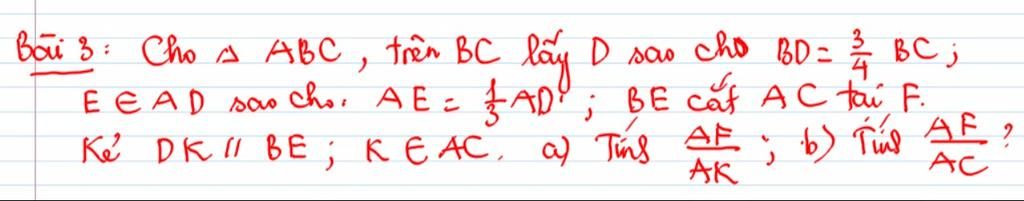 Bài 3: Cho △ ABC, trên BC lấy D sao cho BD = 3/4 BC;
E ∈ AD sao cho. AE = 1/3 AD; BE cắt AC tại F.
Kẻ DK // BE; K ∈ AC. a) Tính AF/AK; b) Tính AF/AC?